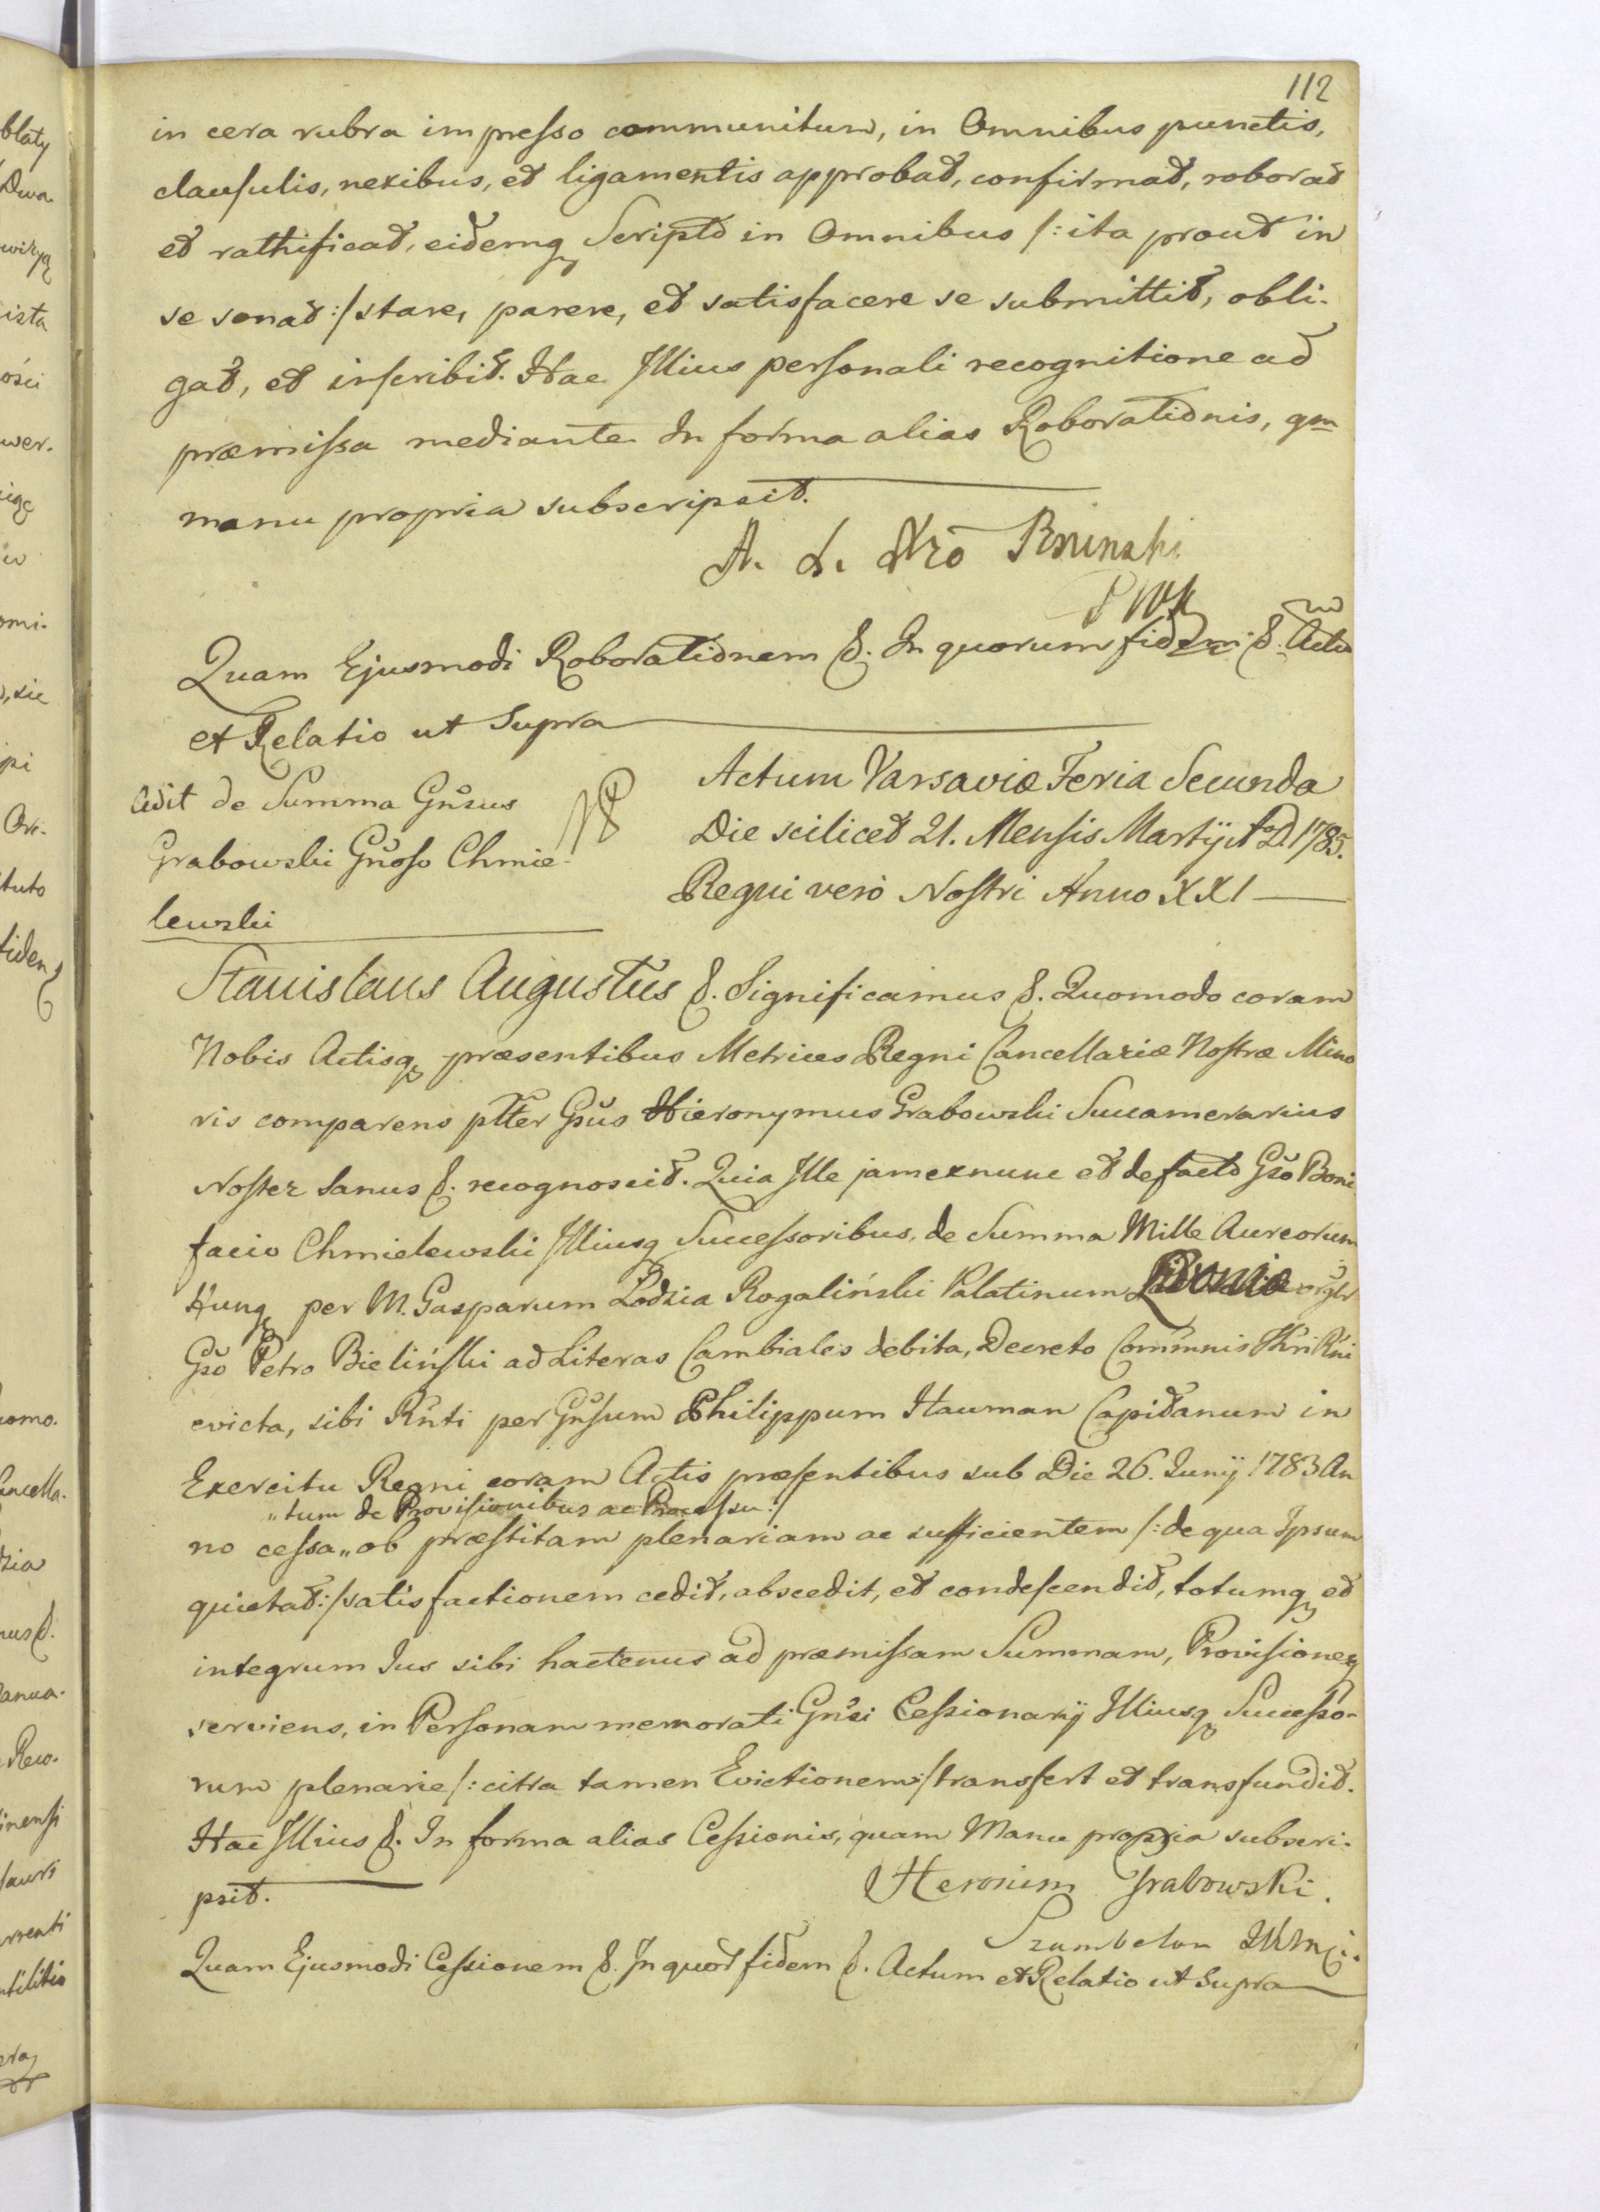 112
in cera rubra impresso communitum, in Omnibus punctis,
clausulis, nexibus, et ligamentis approbat, confirmat, roborat
et rathificat, eidemq Scripto in Omnibus /: ita prout in
se sonat :/ stare, parere, et satisfacere se submittit, obli-
gat, et inscribit. Hac Illius personali recognitione ad
præmissa mediante In forma alias Roborationis, qm
manu propria subscripsit.
A. L. Hro Bninski
P W K
Quam Ejusmodi Roborationem &. In quorum fidem &. Actu
et Relatio ut Supra
Cedit de Summa Gnsus
Grabowski Gnoso Chmie-
lewski
Actum Varsaviæ Feria Secunda
Die scilicet 21. Mensis Martij AoD. 1785.
Regni vero Nostri Anno XXI
Stanislaus Augustus &. Significamus &. Quomodo coram
Nobis Actisq præsentibus Metrices Regni Cancellariæ Nostræ Mino
ris comparens pltter Gsus Hieronymus Grabowski Succamerarius
Noster Sanus &. recognoscit. Quia Ille jam exnunc et defacto Gso Boni
facio Chmielewski Illiusq Successoribus, de Summa Mille Aureorum
Hung per M. Gasparum Lodzia Rogaliński Palatinum Livoniæ orglr
Gso Petro Bieliński ad Literas Cambiales debita, Decreto Commnis Thri Rni
evicta, sibi Rnti per Gnsum Philippum Hauman Capitanum in
Exercitu Regni coram Actis præsentibus sub Die 26. Junij 1783 An
„tum de Provisionibus ac Processu :/
no cessa„ ob præstitam plenariam ac sufficientem /: de qua Ipsum
quietat :/ satisfactionem cedit, abscedit, et condescendit, totumq et
integrum Jus sibi hactenus ad præmissam Summam, Provisionesq
serviens, in Personam memorati Gnsi Cessionarij Illiusq Successo-
rum plenarie /: citra tamen Evictionem :/ transfert et transfundit.
Hac Illius &. In forma alias Cessionis, quam Manu propria subscri-
psit.
Heronim Grabowski.
Szambelan JKMci.
Quam Ejusmodi Cessionem &. In quor fidem &. Actum et Relatio ut Supra